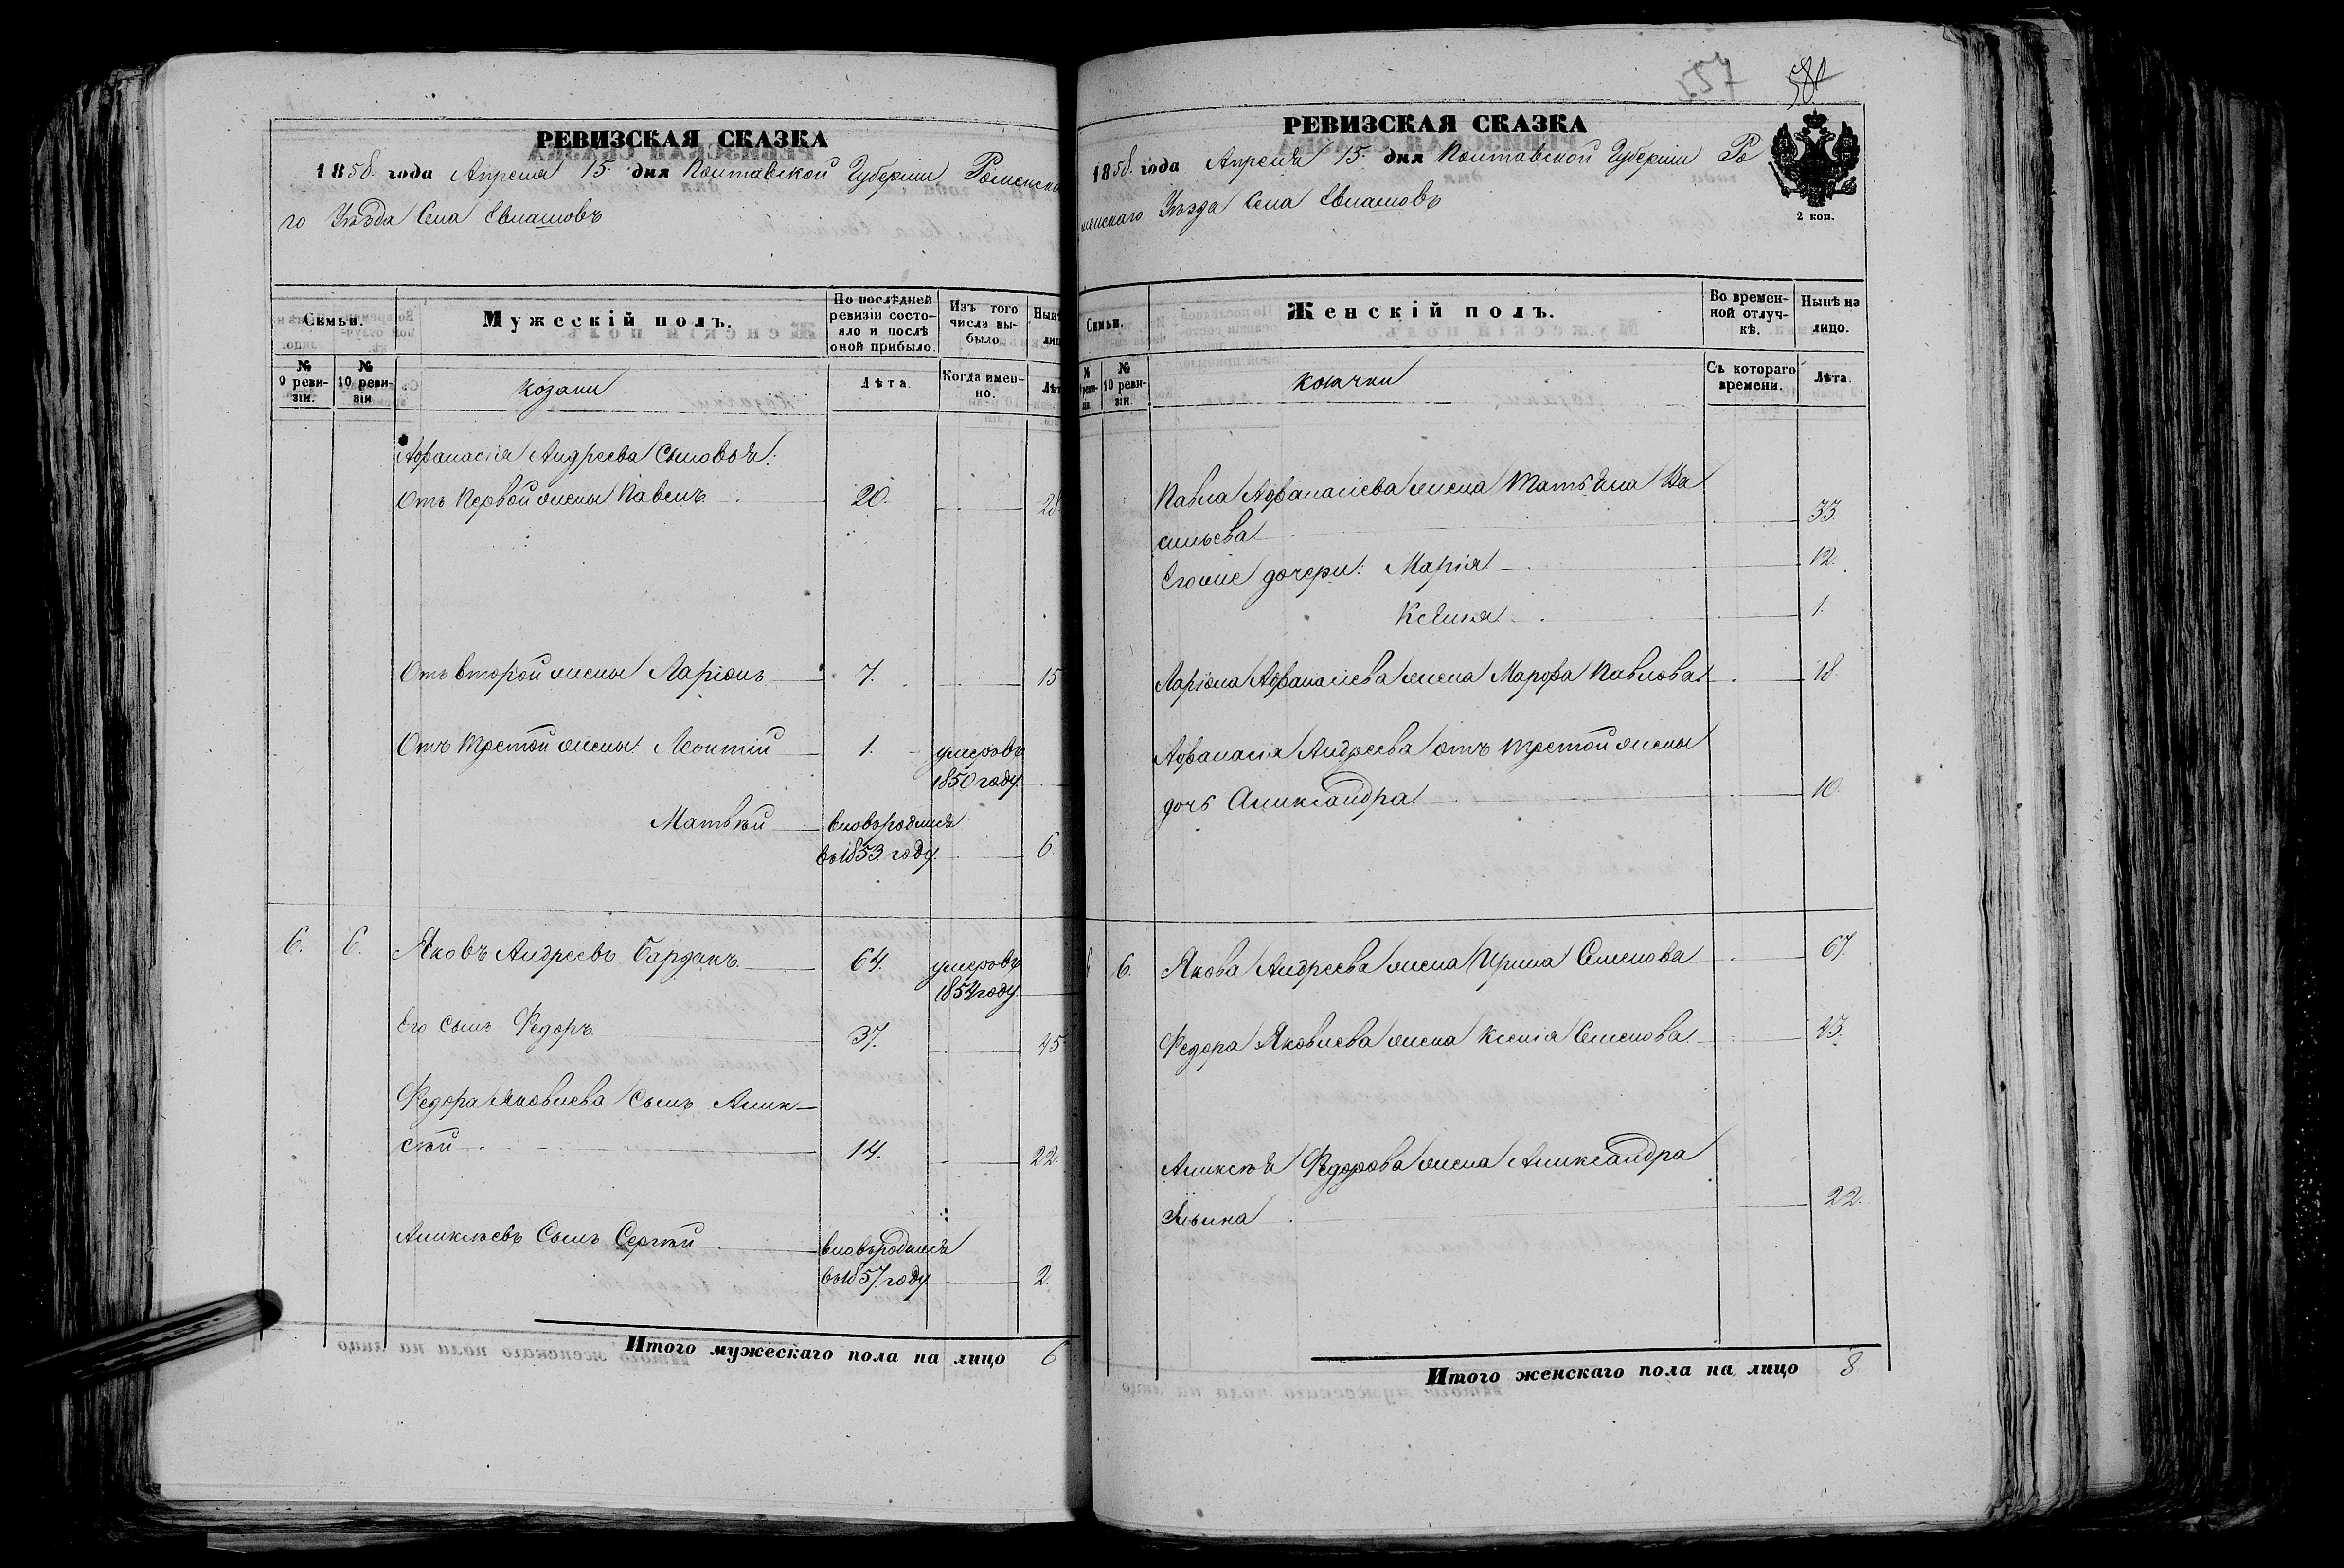 РЕВИЗСКАЯ СКАЗКА
1858. года Апреля 15. дня Полтавской Губерніи Роменска
го Уѣзда Села Евлашовъ
Семьи.
Мужескій полъ.
По послѣдней ревизіи состояло и послѣ оной прибыло.
Изъ того числа выбыло.
Нынѣ
лиц
№ 9 ревизіи.
№ 10 ревизіи
Козаки
Лѣта
Когда именно.
Лѣт
Афанасія Андреева Сыновья:
Отъ Первой жены Павелъ 20. 28.
Отъ второй жены Ларіонъ 7. 15
Отъ третой жены Леонтій 1. умеръ въ
1850 году.
Матвѣй вновь родился
въ 1853. году. 6.
6. 6. Яковъ Андреевъ Бардакъ 64. умеръ въ
1854 году.
Его Сынъ Федоръ 37. 45
Федора Яковлева Сынъ Алик-
сѣй 14. 22.
Аликсѣевъ Сынъ Сергѣй вновь родился
въ 1857. году. 2.
Итого мужескаго пола на лицо 6
557 58
РЕВИЗСКАЯ СКАЗКА
1858. года Апреля 15. дня Полтавской Губерніи Ро
менскаго Уѣзда Села Евлашовъ
2 коп.
Семьи.
Женскій полъ.
Во временной отлучкѣ.
Нынѣ на лицо.
№ 9 ревизіи.
№ 10 ревизіи.
козачки
Съ котораго времени.
Лѣта.
Павла Афанасіева жена Татьяна Ва
сильева 33.
Егоже дочери: Марія 12.
Ксенія 1.
Ларіона Афанасіева жена Марфа Павлова 18.
Афанасія Андреева отъ третой жены
дочь Аликсандра 10.
6. Якова Андреева жена Ирина Семенова 67.
Федора Яковлева жена Ксенія Семенова 43.
Аликсѣя Федорова жена Аликсандра
Ильина 22.
Итого женскаго пола на лицо 8.